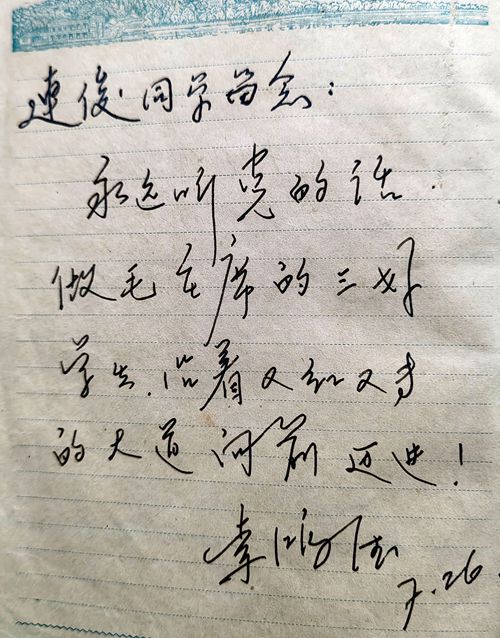 連俊同学留念：
永远听党的话.
做毛主席的三好
学生.沿着又红又专
的大道向前迈进！
李
7.26.